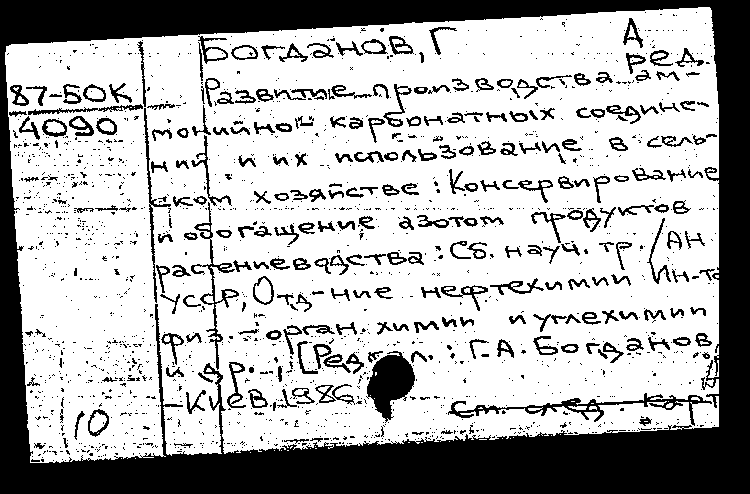 Богданов, Г А
ред.
87-БОК
4090
Развитие производства ам-
монийно- карбонатных соедине-
ний и их использование в сель-
ском хозяйстве: Консервирование
и обогащение азотом продуктов
растениеводства: Сб. науч. тр. / АН
УССР, Отд-ние нефтехимии Ин-та
физ.-орган. химии и углехимии
и др.; [Редкол.: Г.А. Богданов
-Киев, 1986
См. след. карт
10